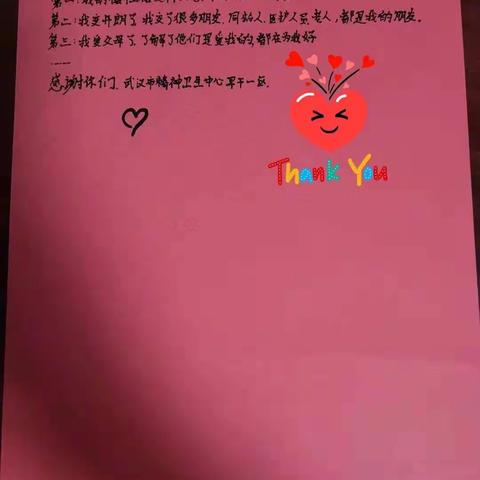 第二:我变开朗了,我交了很多朋友,同龄人,医护人员,老人,都是我的朋友。
第三:我爱父母了,了解了他们是爱我的,都在为我好
……
感谢你们,武汉市精神卫生中心早干一区.
Thank You